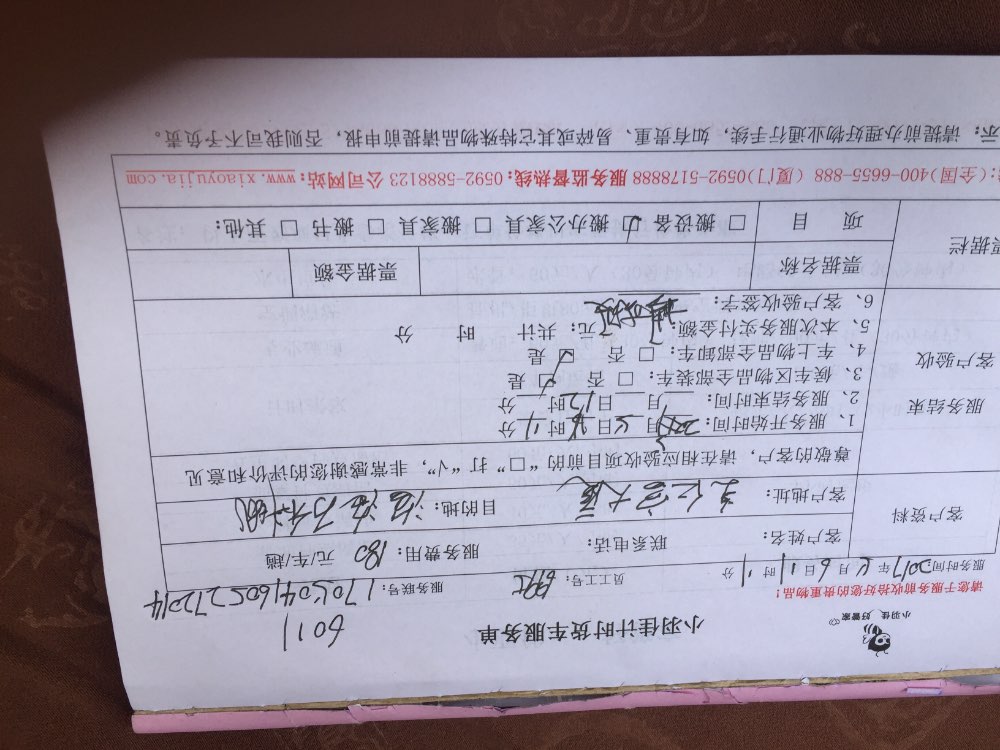 小羽佳 好管家
小羽佳计时货车服务单
6011
请您于服务前收拾好您的贵重物品!
服务时间:2017年 月6日11时 分
员工工号:
服务联号:
客户资料
客户姓名:
联系电话:
服务费用:180 元/车/趟
客户地址:文化宫大厦
目的地:
尊敬的客户,请在相应验收项目前的“□”打“√”,非常感谢您的评价和意见
服务结束
客户验收
1、服务开始时间: 月 日 时 分
2、服务结束时间: 月 日12时 分
3、候车区物品全部装车:□ 否 ☑ 是
4、车上物品全部卸车:□ 否 ☑ 是
5、本次服务实付金额: 元;共计 时 分
6、客户验收签字:
票据栏
票据名称
票据金额
项 目
□ 搬设备 ☑ 搬办公家具 □ 搬家具 □ 搬书 □ 其他:
:(全国)400-6655-888 (厦门)0592-5178888 服务监督热线:0592-5888123 公司网站:www.xiaoyujia.com
示:请提前办理好物业通行手续,如有贵重、易碎或其它特殊物品请提前申报,否则我司不予负责。